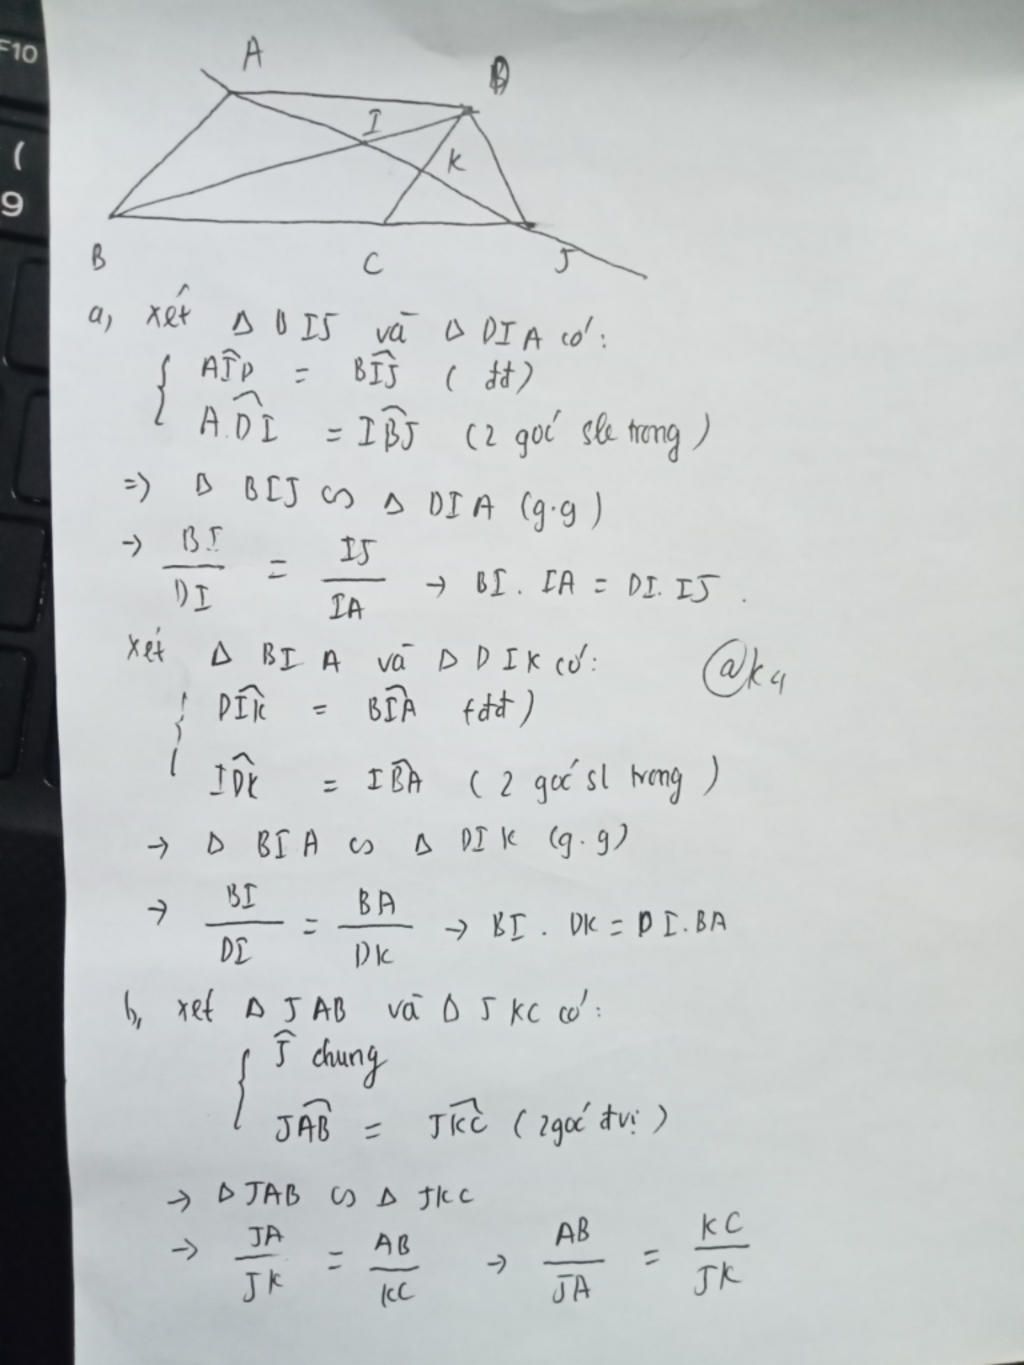 F10
(
9
A
D
I
K
B
C
J
a, xét Δ BIJ và Δ DIA có:
AID = BIJ (đđ)
A.DI = IBJ (2 góc sle trong)
=> Δ BIJ ∽ Δ DIA (g.g)
→ BI/DI = IJ/IA → BI . IA = DI. IJ .
xét Δ BIA và Δ DIK có:
@k4
DIK = BIA (đđ)
IDK = IBA (2 góc sl trong)
→ Δ BIA ∽ Δ DIK (g.g)
→ BI/DI = BA/DK → BI . DK = DI.BA
b, xét Δ JAB và Δ JKC có:
J chung
JAB = JKC (2góc đvị)
→ Δ JAB ∽ Δ JKC
→ JA/JK = AB/KC → AB/JA = KC/JK